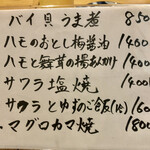 バイ貝うま煮 850
ハモのおとし梅醤油 1400
ハモと舞茸の揚あんかけ 1400
サワラ塩焼 1400
サワラとゆずのご飯(小) 160
マグロカマ焼 1800